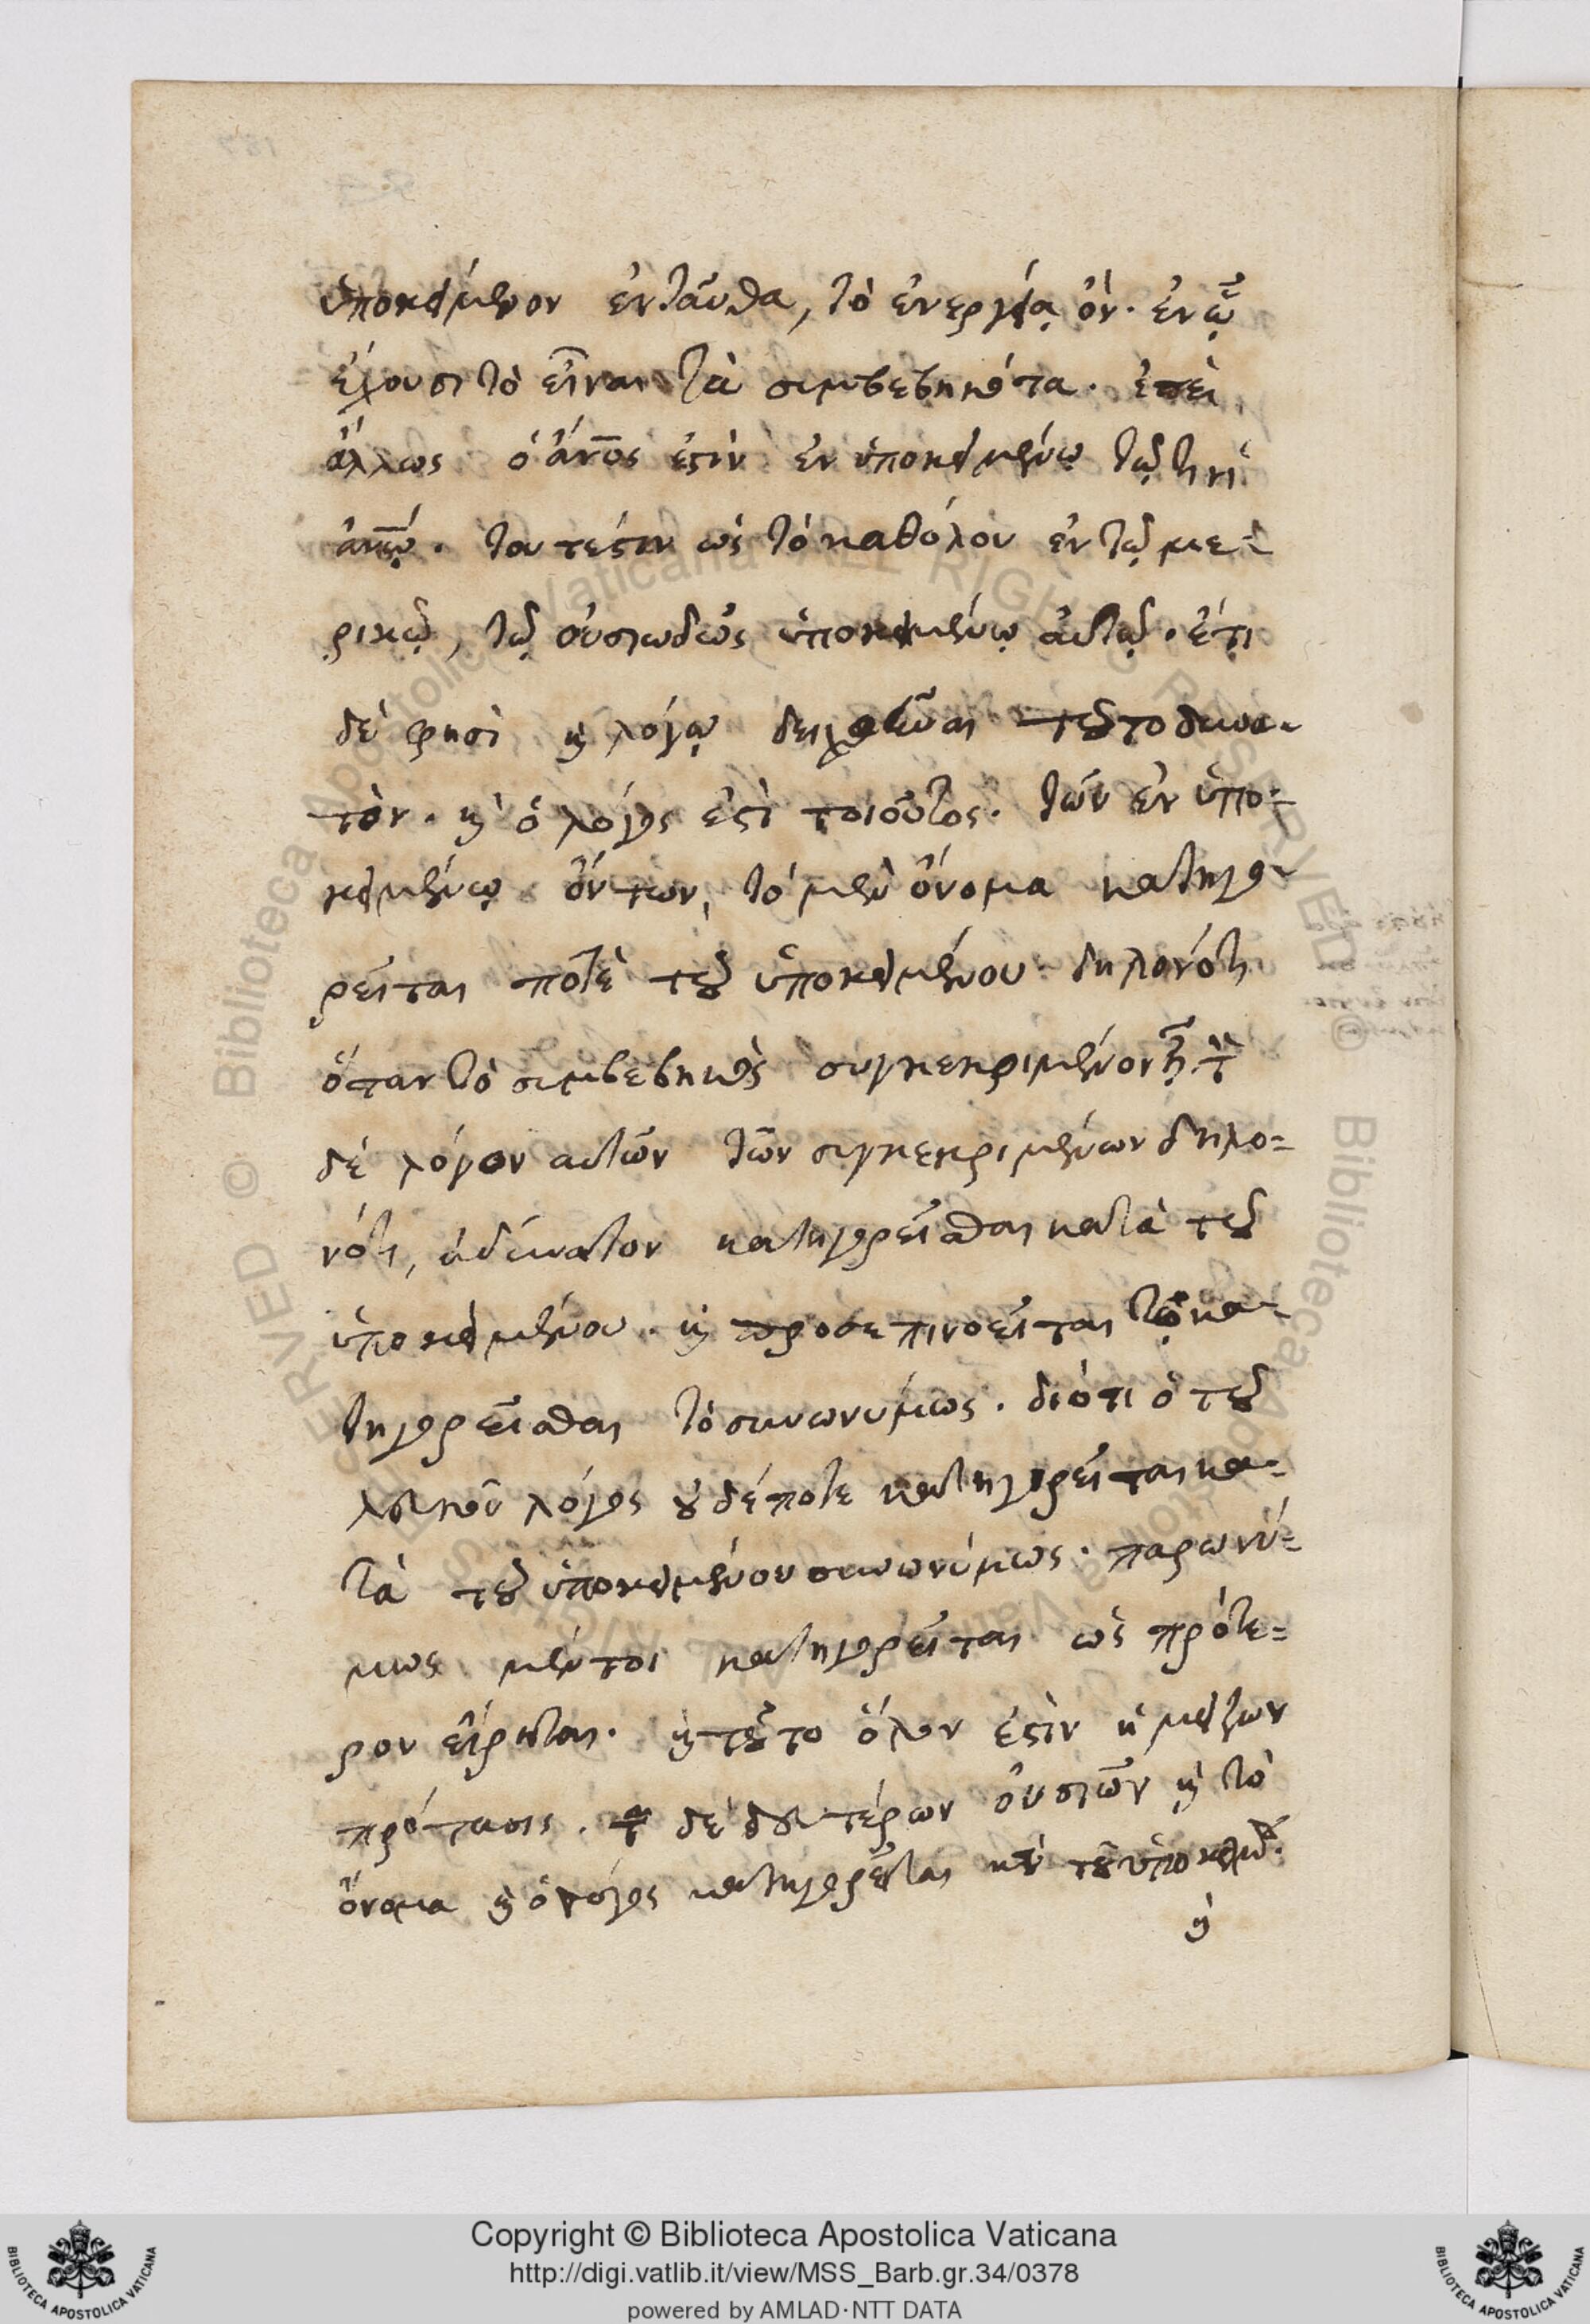 ὑποκείμενον ἐνταῦθα, τὸ ἐνεργείᾳ ὄν· ἐν ᾧ
ἔχουσι τὸ εἶναι τὰ συμβεβηκότα. ἐπεὶ
ἄλλως ὁ ἄνος ἐστὶν ἐν ὑποκειμένῳ τῷ τινὶ
ἀνῳ. τουτέστιν ὡς τὸ καθόλου ἐν τῷ με=
ρικῷ, τῷ οὐσιωδῶς ὑποκειμένῳ αὐτῷ. ἔτι
δέ φησι καὶ λόγῳ δειχθῆναι τοῦτο δυνα-
τόν. καὶ ὁ λόγος ἐστὶ τοιοῦτος. τῶν ἐν ὑπο-
κειμένῳ ὄντων, τὸ μὲν ὄνομα κατηγο-
ρεῖται ποτὲ τοῦ ὑποκειμένου. δηλονότι
ὅταν τὸ συμβεβηκὸς συγκεκριμένον ᾖ. τὸν
δὲ λόγον αὐτῶν τῶν συγκεκριμένων δηλο=
νότι, ἀδύνατον κατηγορεῖσθαι κατὰ τοῦ
ὑποκειμένου. καὶ προσεπινοεῖται τῷ κα-
τηγορεῖσθαι τὸ συνωνύμως. διότι ὁ τοῦ
λευκοῦ λόγος οὐδέποτε κατηγορεῖται κα-
τὰ τοῦ ὑποκειμένου συνωνύμως. παρωνύ=
μως μέντοι κατηγορεῖται ὡς πρότε=
ρον εἴρηται. καὶ τοῦτο ὅλον ἐστὶν ἡ μείζων
πρότασις. τῶν δὲ δευτέρων οὐσιῶν καὶ τὸ
ὄνομα καὶ ὁ λόγος κατηγορεῖται κατὰ τοῦ ὑποκειμένου.
καὶ
Copyright © Biblioteca Apostolica Vaticana
http://digi.vatlib.it/view/MSS_Barb.gr.34/0378
powered by AMLAD·NTT DATA